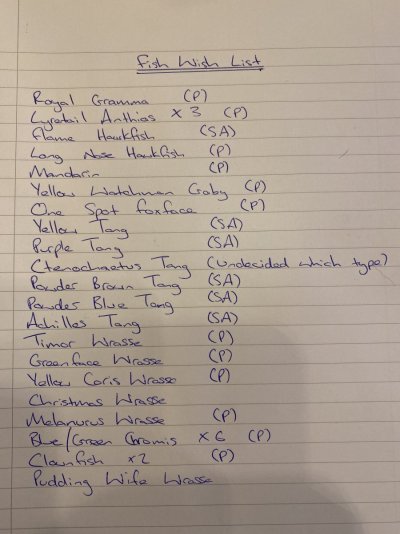 Fish Wish List
Royal Gramma (P)
Lyretail Anthias x 3 (P)
Flame Hawkfish (SA)
Long Nose Hawkfish (P)
Mandarin (P)
Yellow Watchman Goby (P)
One Spot Foxface (P)
Yellow Tang (SA)
Purple Tang (SA)
Ctenochaetus Tang (undecided which type)
Powder Brown Tang (SA)
Powder Blue Tang (SA)
Achilles Tang (SA)
Timor Wrasse (P)
Greenface Wrasse (P)
Yellow Coris Wrasse (P)
Christmas Wrasse
Melanurus Wrasse (P)
Blue/Green Chromis x 6 (P)
Clownfish x2 (P)
Pudding Wife Wrasse